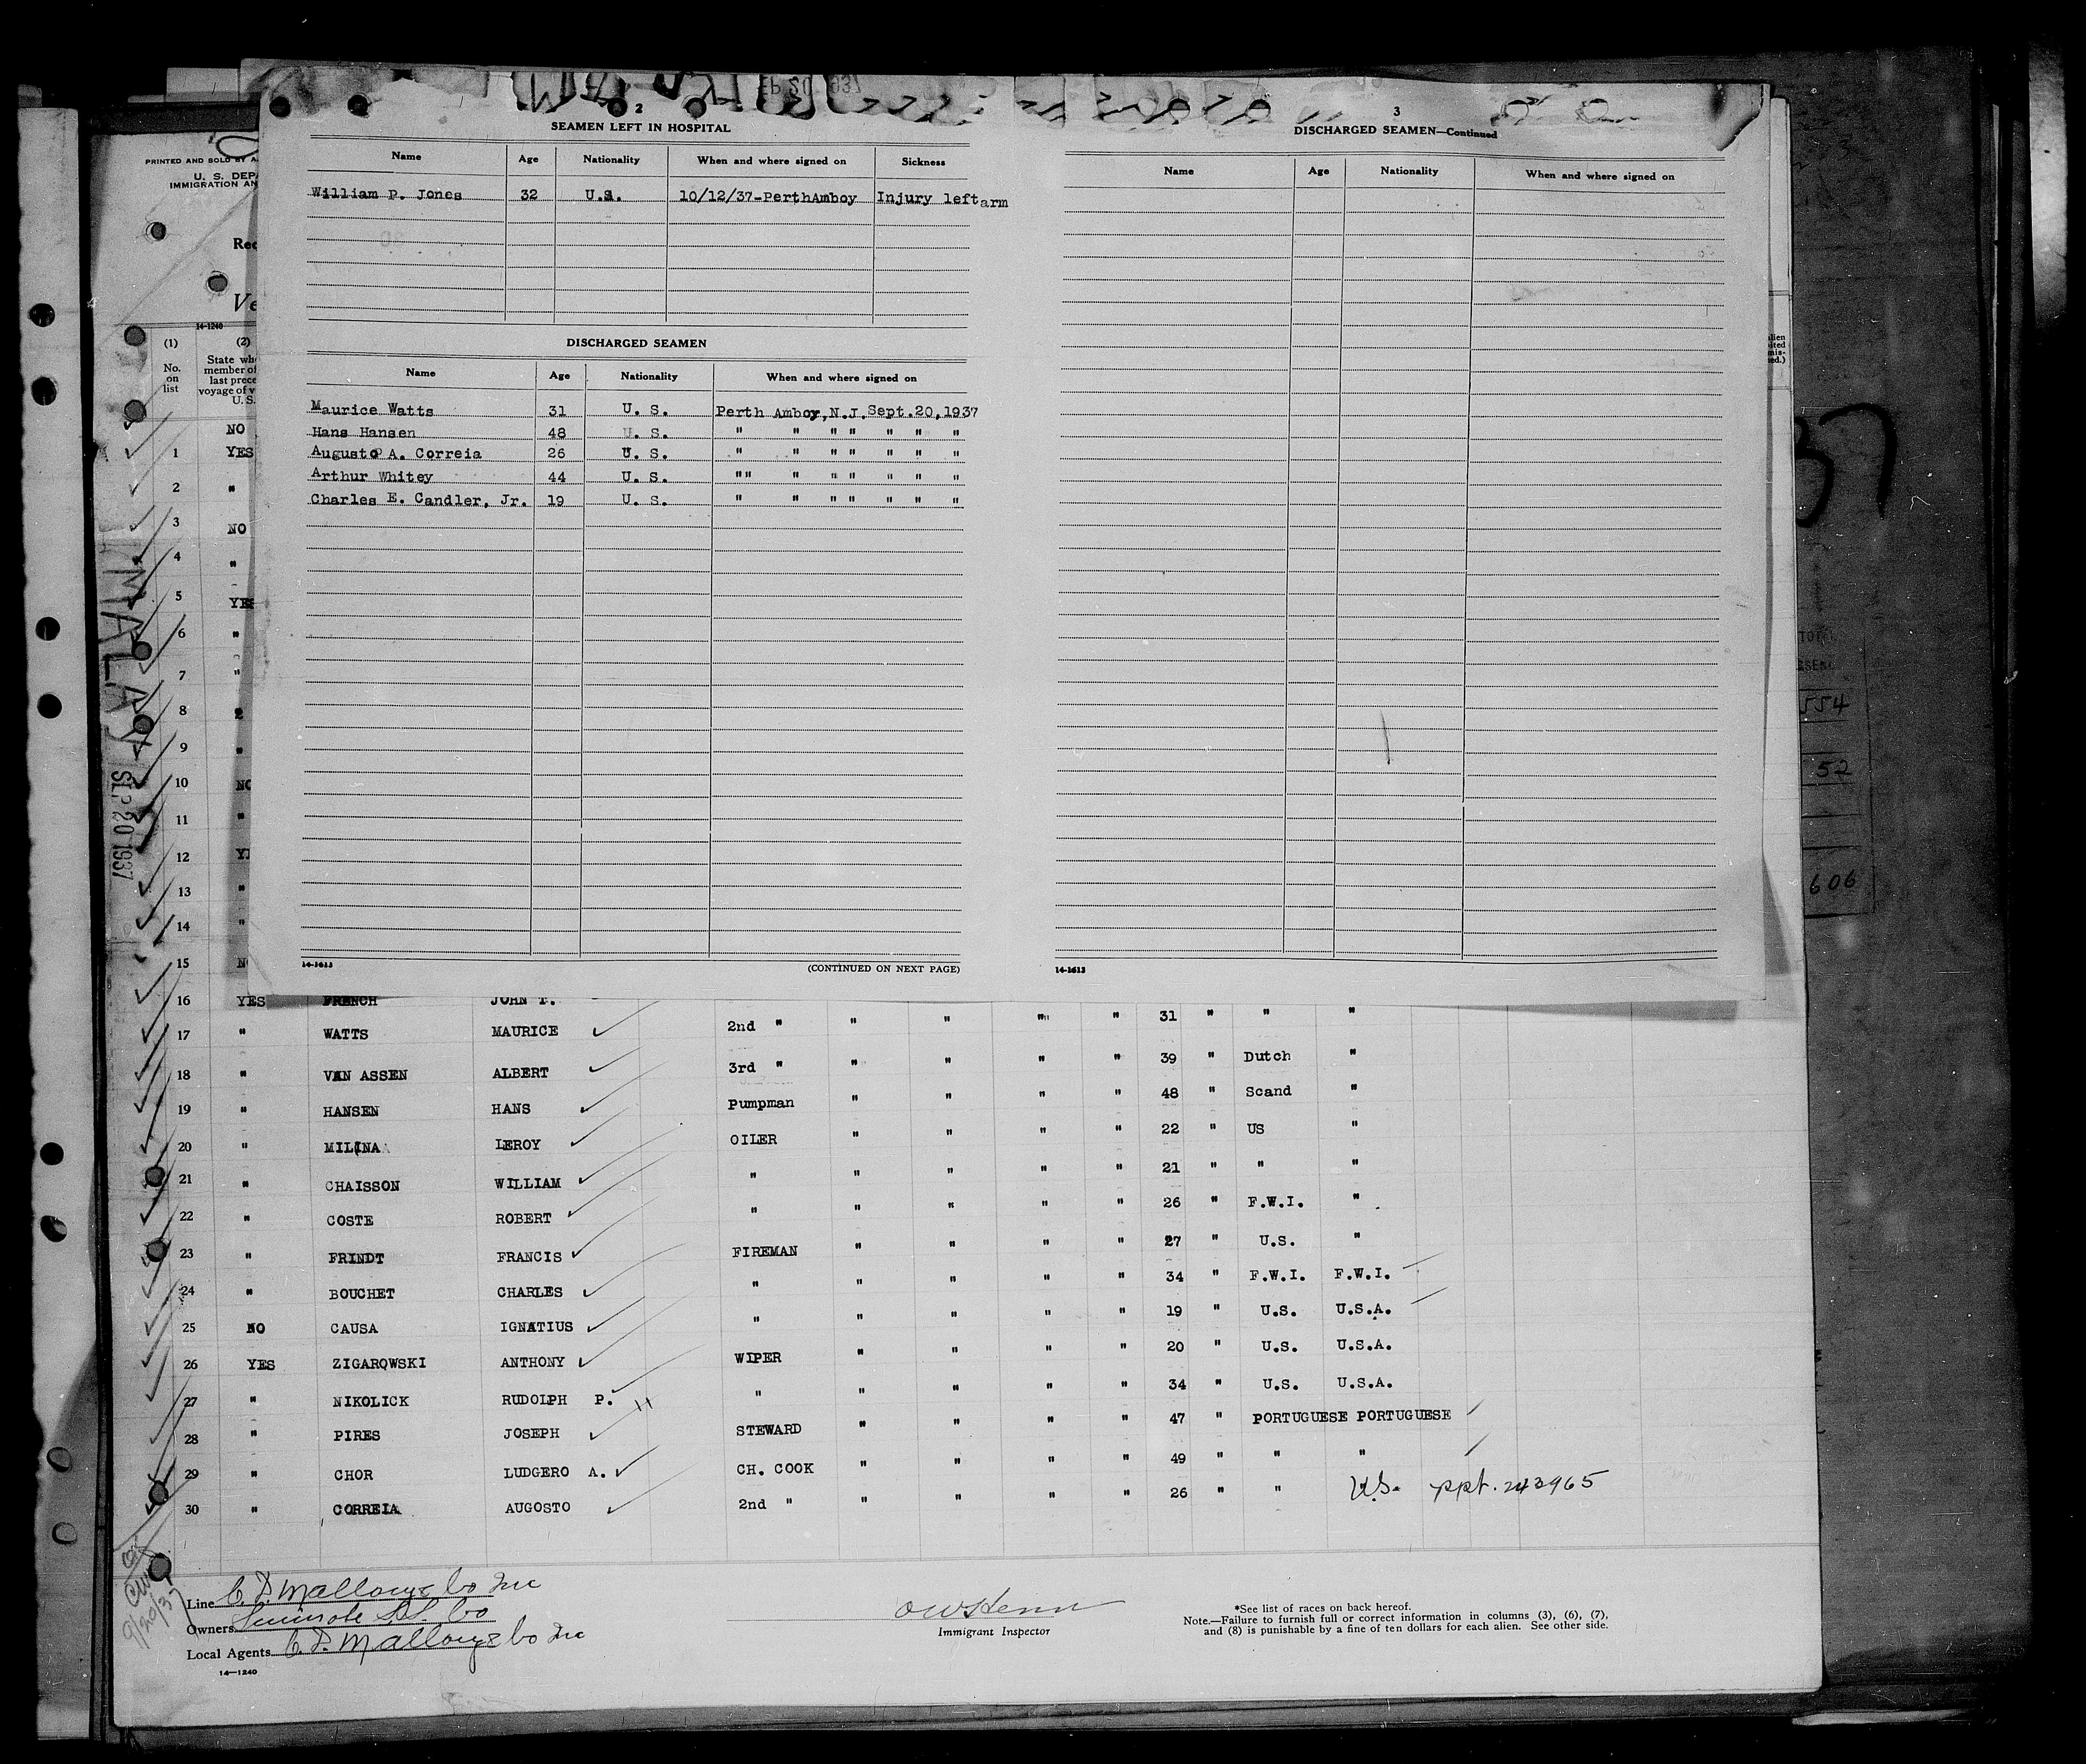 2
SEAMEN LEFT IN HOSPITAL
Name Age Nationality When and where signed on Sickness
William P. Jones 32 U.S. 10/12/37-PerthAmboy Injury left arm
DISCHARGED SEAMEN
Name Age Nationality When and where signed on
Maurice Watts 31 U. S. Perth Amboy,N.J.Sept.20,1937
Hans Hansen 48 U. S. " " " " " " "
Augusto A. Correia 26 U. S. " " " " " " "
Arthur Whitey 44 U. S. "" " " " " " "
Charles E. Candler, Jr. 19 U. S. " " " " " " "
14-1613 (CONTINUED ON NEXT PAGE)
3
DISCHARGED SEAMEN—Continued
Name Age Nationality When and where signed on
14-1613
PRINTED AND SOLD BY
U. S. DEPA
IMMIGRATION AN
Rec
Ve
14-1240
(1) (2)
No. on list
State wh
member of
last prece
voyage of v
U. S.
NO
1 YES
2 "
3 NO
4 "
5 YES
6 "
7 "
8
9 "
10 NO
11 "
12
13 "
14 "
15
16 YES FRENCH JOHN T.
17 " WATTS MAURICE 2nd " " " " " 31 " " "
18 " VAN ASSEN ALBERT 3rd " " " " " 39 " Dutch "
19 " HANSEN HANS Pumpman " " " " 48 " Scand "
20 " MILINA LEROY OILER " " " " 22 " US "
21 " CHAISSON WILLIAM " " " " " 21 " " "
22 " COSTE ROBERT " " " " " 26 " F.W.I. "
23 " FRINDT FRANCIS FIREMAN " " " " 27 " U.S. "
24 " BOUCHET CHARLES " " " " " 34 " F.W.I. F.W.I.
25 NO CAUSA IGNATIUS " " " " " 19 " U.S. U.S.A.
26 YES ZIGAROWSKI ANTHONY WIPER " " " " 20 " U.S. U.S.A.
27 " NIKOLICK RUDOLPH P. " " " " " 34 " U.S. U.S.A.
28 " PIRES JOSEPH STEWARD " " " " 47 " PORTUGUESE PORTUGUESE
29 " CHOR LUDGERO A. CH. COOK " " " " 49 " " "
30 " CORREIA AUGOSTO 2nd " " " " " 26 " " U.S. ppt. 243965
MALAY
SEP 20 1937
9/20/37
Line C. D. Mallory & Co Inc
Owners Seminole S.S. Co
Local Agents C. D. Mallory & Co Inc
14—1240
Immigrant Inspector
*See list of races on back hereof.
Note.—Failure to furnish full or correct information in columns (3), (6), (7),
and (8) is punishable by a fine of ten dollars for each alien. See other side.
37
554
52
606